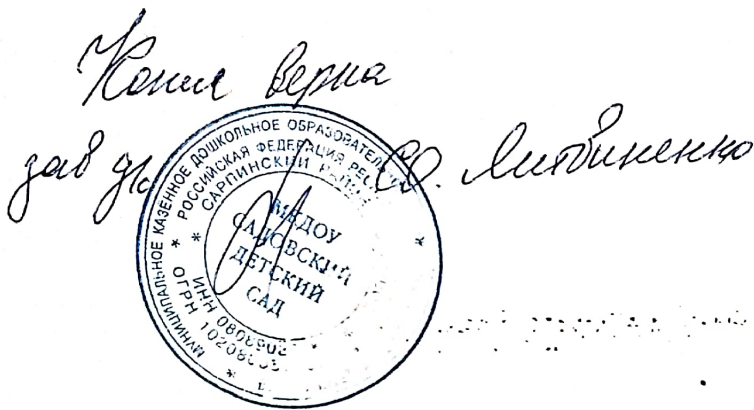 Копия верна
зав д/с С.О. Литвиненко
МУНИЦИПАЛЬНОЕ КАЗЕННОЕ ДОШКОЛЬНОЕ ОБРАЗОВАТЕЛ
РОССИЙСКАЯ ФЕДЕРАЦИЯ РЕСП
САРПИНСКИЙ
МКДОУ
САДОВСКИЙ
ДЕТСКИЙ
САД
ИНН 0808902
ОГРН 10208